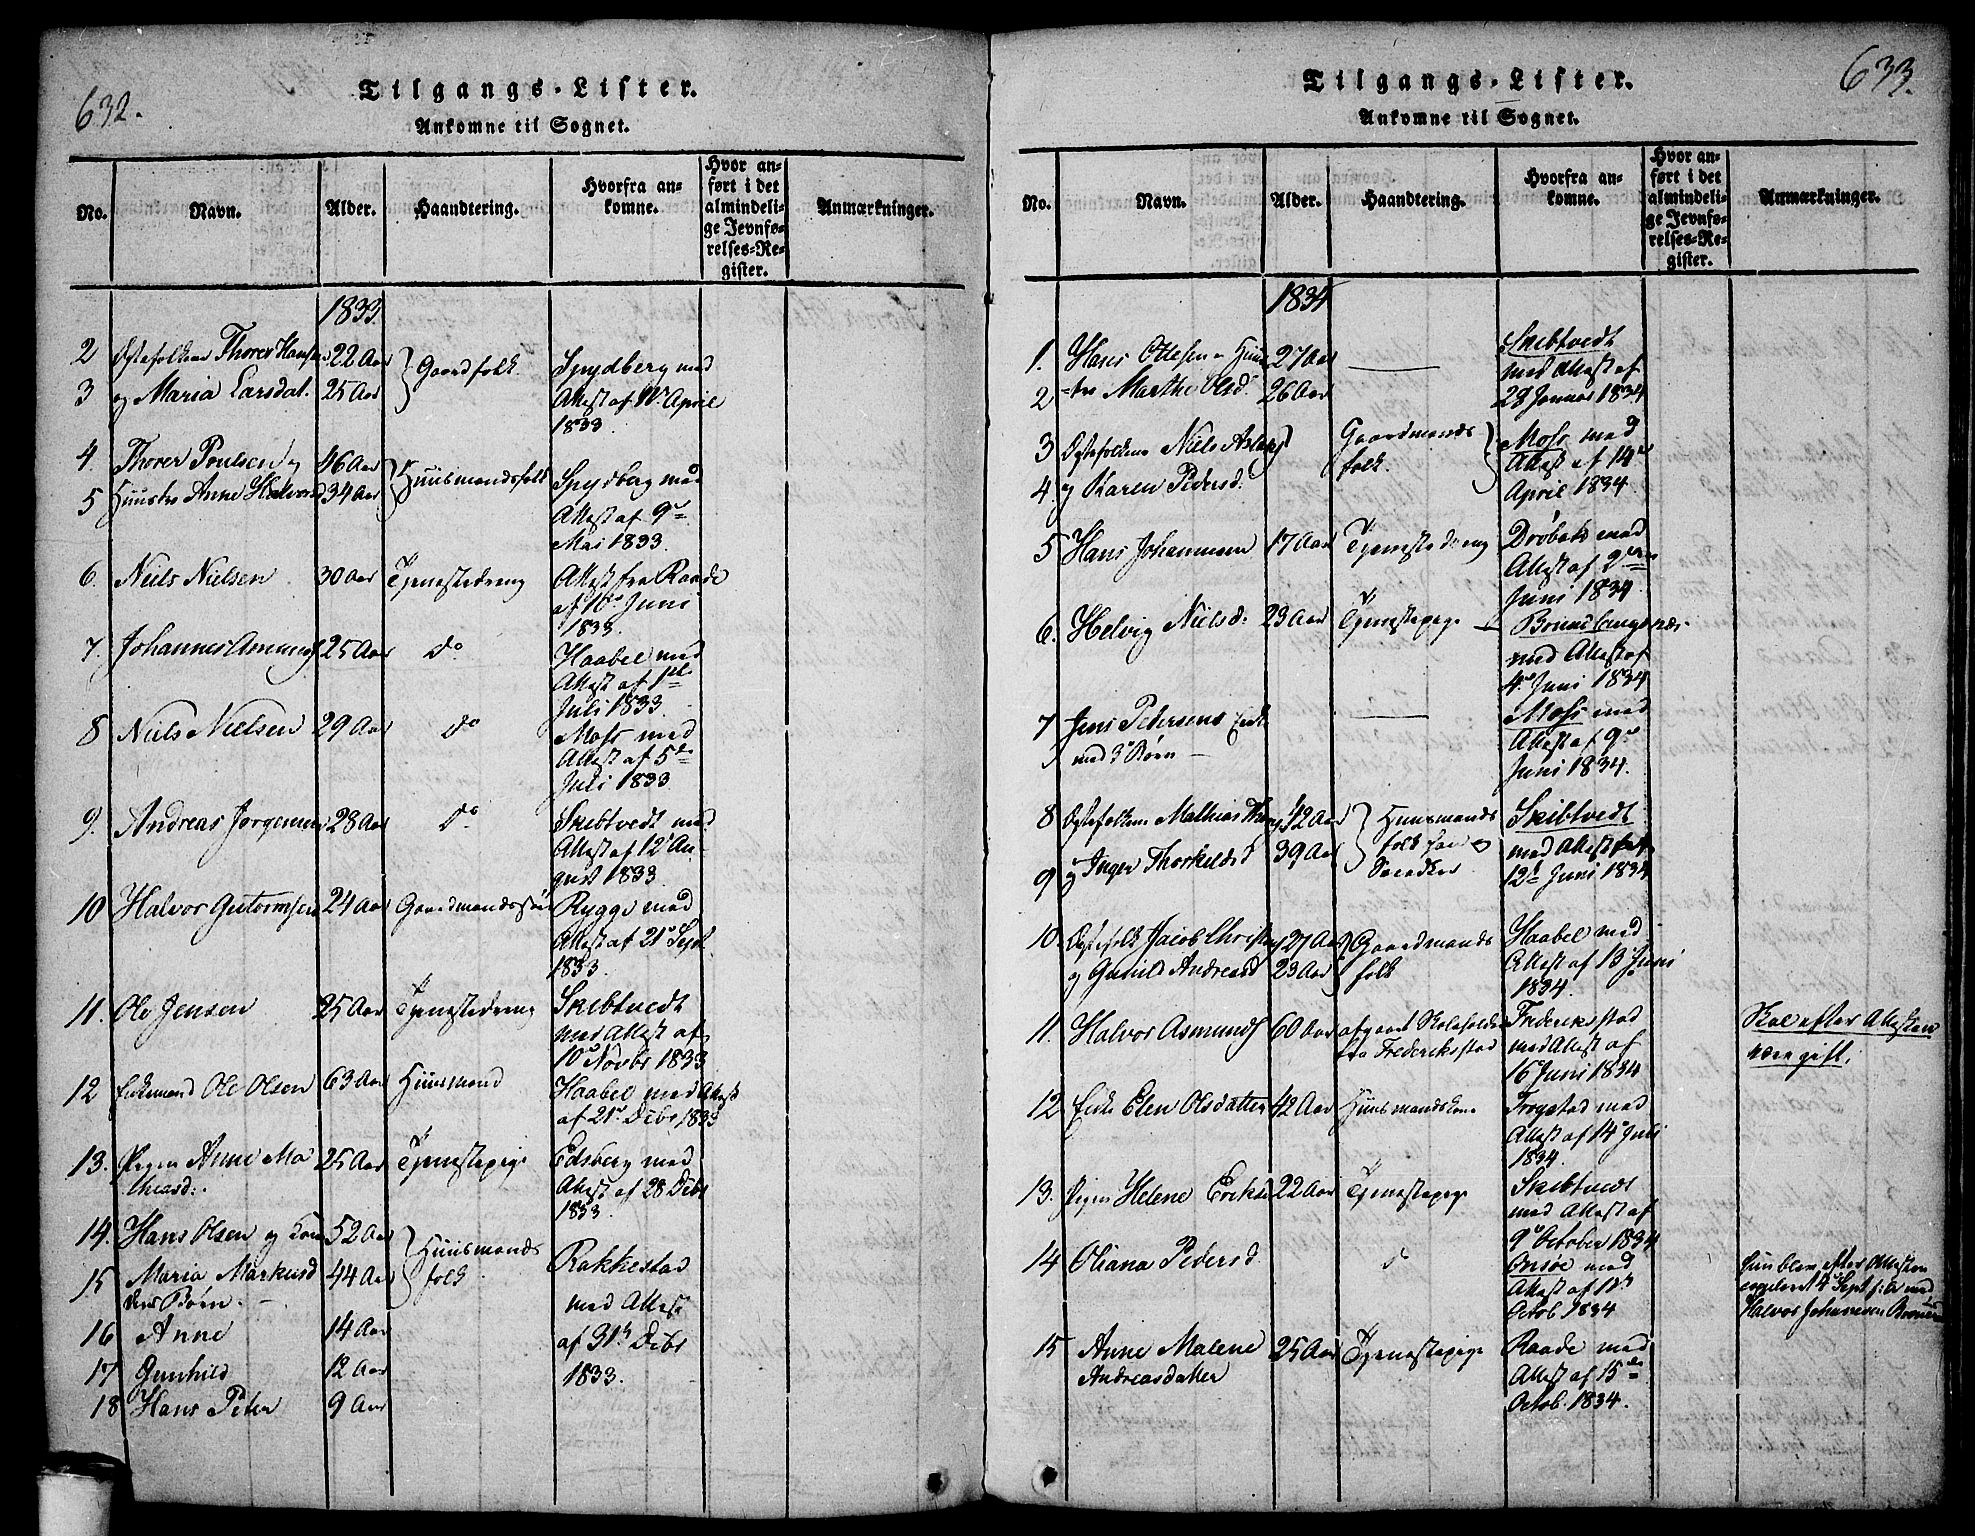 632.
Tilgangs-Lister.
Ankomne til Sognet.
No. Navn. Alder. Haandtering. Hvorfra ankomne. Hvor anført i det almindelige Jevnførelses-Register. Anmærkninger.
1833.
2 Ægtefolkene Thorer Hansen 22 Aar Gaardfolk. Spydberg med
3 og Maria Larsdat. 25 Aar Attest af April
1833
4. Thorer Poulsen og 46 Aar Huusmandsfolk Spydberg med
5 Huustro Anne Halvorsd 34 Aar Attest af 9de
Mai 1833.
6. Niels Nielsen 30 Aar Tjenestedreng Attest fra Raade
af Juni
1833.
7. Johannes Asmunds 25 Aar do Haabel med
Attest af 1ste
Juli 1833.
8 Niels Nielsen 29 Aar do Moss med
Attest af 5te
Juli 1833
9. Andreas Jørgensen 28 Aar do Skibtvedt med
Attest af 12 Au-
gust 1833.
10 Halvor Gutormsen 24 Aar Gaardmandssøn Rygge med
Attest af 21 Sept.
1833.
11. Ole Jensen 25 Aar Tjenestedreng Skibtvedt
med Attest af
10de Novbr 1833
12 Enkemand Ole Olsen 63 Aar Huusmand Haabel med Attest
af 21. Debr 1833
13. Pigen Anne Ma 25 Aar Tjenestepige Edsberg med
thiasd: Attest af 28 Debr
1833.
14. Hans Olsen og Kone 52 Aar Huusmands
15 Maria Markusd 44 Aar folk. Rakkestad
deres Børn. med Attest
16 Anne 14 Aar af 31te Debr
17 Gunhild 12 Aar 1833.
18 Hans Peter 9 Aar
633.
Tilgangs-Lister.
Ankomne til Sognet.
No. Navn. Alder. Haandtering. Hvorfra ankomne. Hvor anført i det almindelige Jevnførelses-Register. Anmærkninger.
1834
1. Hans Ottesen og Huus 27 Aar Skibtvedt
2 -tro Marthe Olsd. 26 Aar med Attest af
28 Januar 1834
3 Ægtefolkene Niels Gaardmands Moss med
4. og Karen Pedersd. folk. Attest af 14de
April 1834.
5 Hans Johannesen 17 Aar Tjenestedreng Drøbak med
Attest af 2den
Juni 1834.
6. Helvig Nielsd: 23 Aar Tjenestepige
med Attest af
4de Juni 1834
7 Jens Pedersens Enke Moss med
med 3 Børn Attest af 9de
Juni 1834.
8 Ægtefolkene Mathias 42 Aar Huusmands Skibtvedt
9 og Inger Thorkelsd 39 Aar folk med Attest
12te Juni 1834
10. Ægtefolk Jacob Christens 27 Aar Gaardmands Haabel med
og Gunild Andreasd 23 Aar folk Attest af 13 Juni
1834.
11. Halvor Asmunds 60 Aar afgaaet Skoleholder Frederiksstad Skal efter Attesten
fra Frederiksstad med Attest af være gift.
16 Juni 1834
12. Enke Elen Olsdatter 42 Aar Huusmandskone Trøgstad med
Attest af 14 Juli
1834.
13. Pigen Helene Eriks 22 Aar Tjenestepige Skibtvedt
med Attest af
9de October 1834
14 Oliana Pedersd Onsøe med Hun blev efter Attesten
Attest af 12te 4 Sept f: A med
Octob. 1834 Halvor Johannesen
15 Anne Malene 25 Aar Tjenestepige Raade med
Andreasdatter Attest af 15de
Octob. 1834.